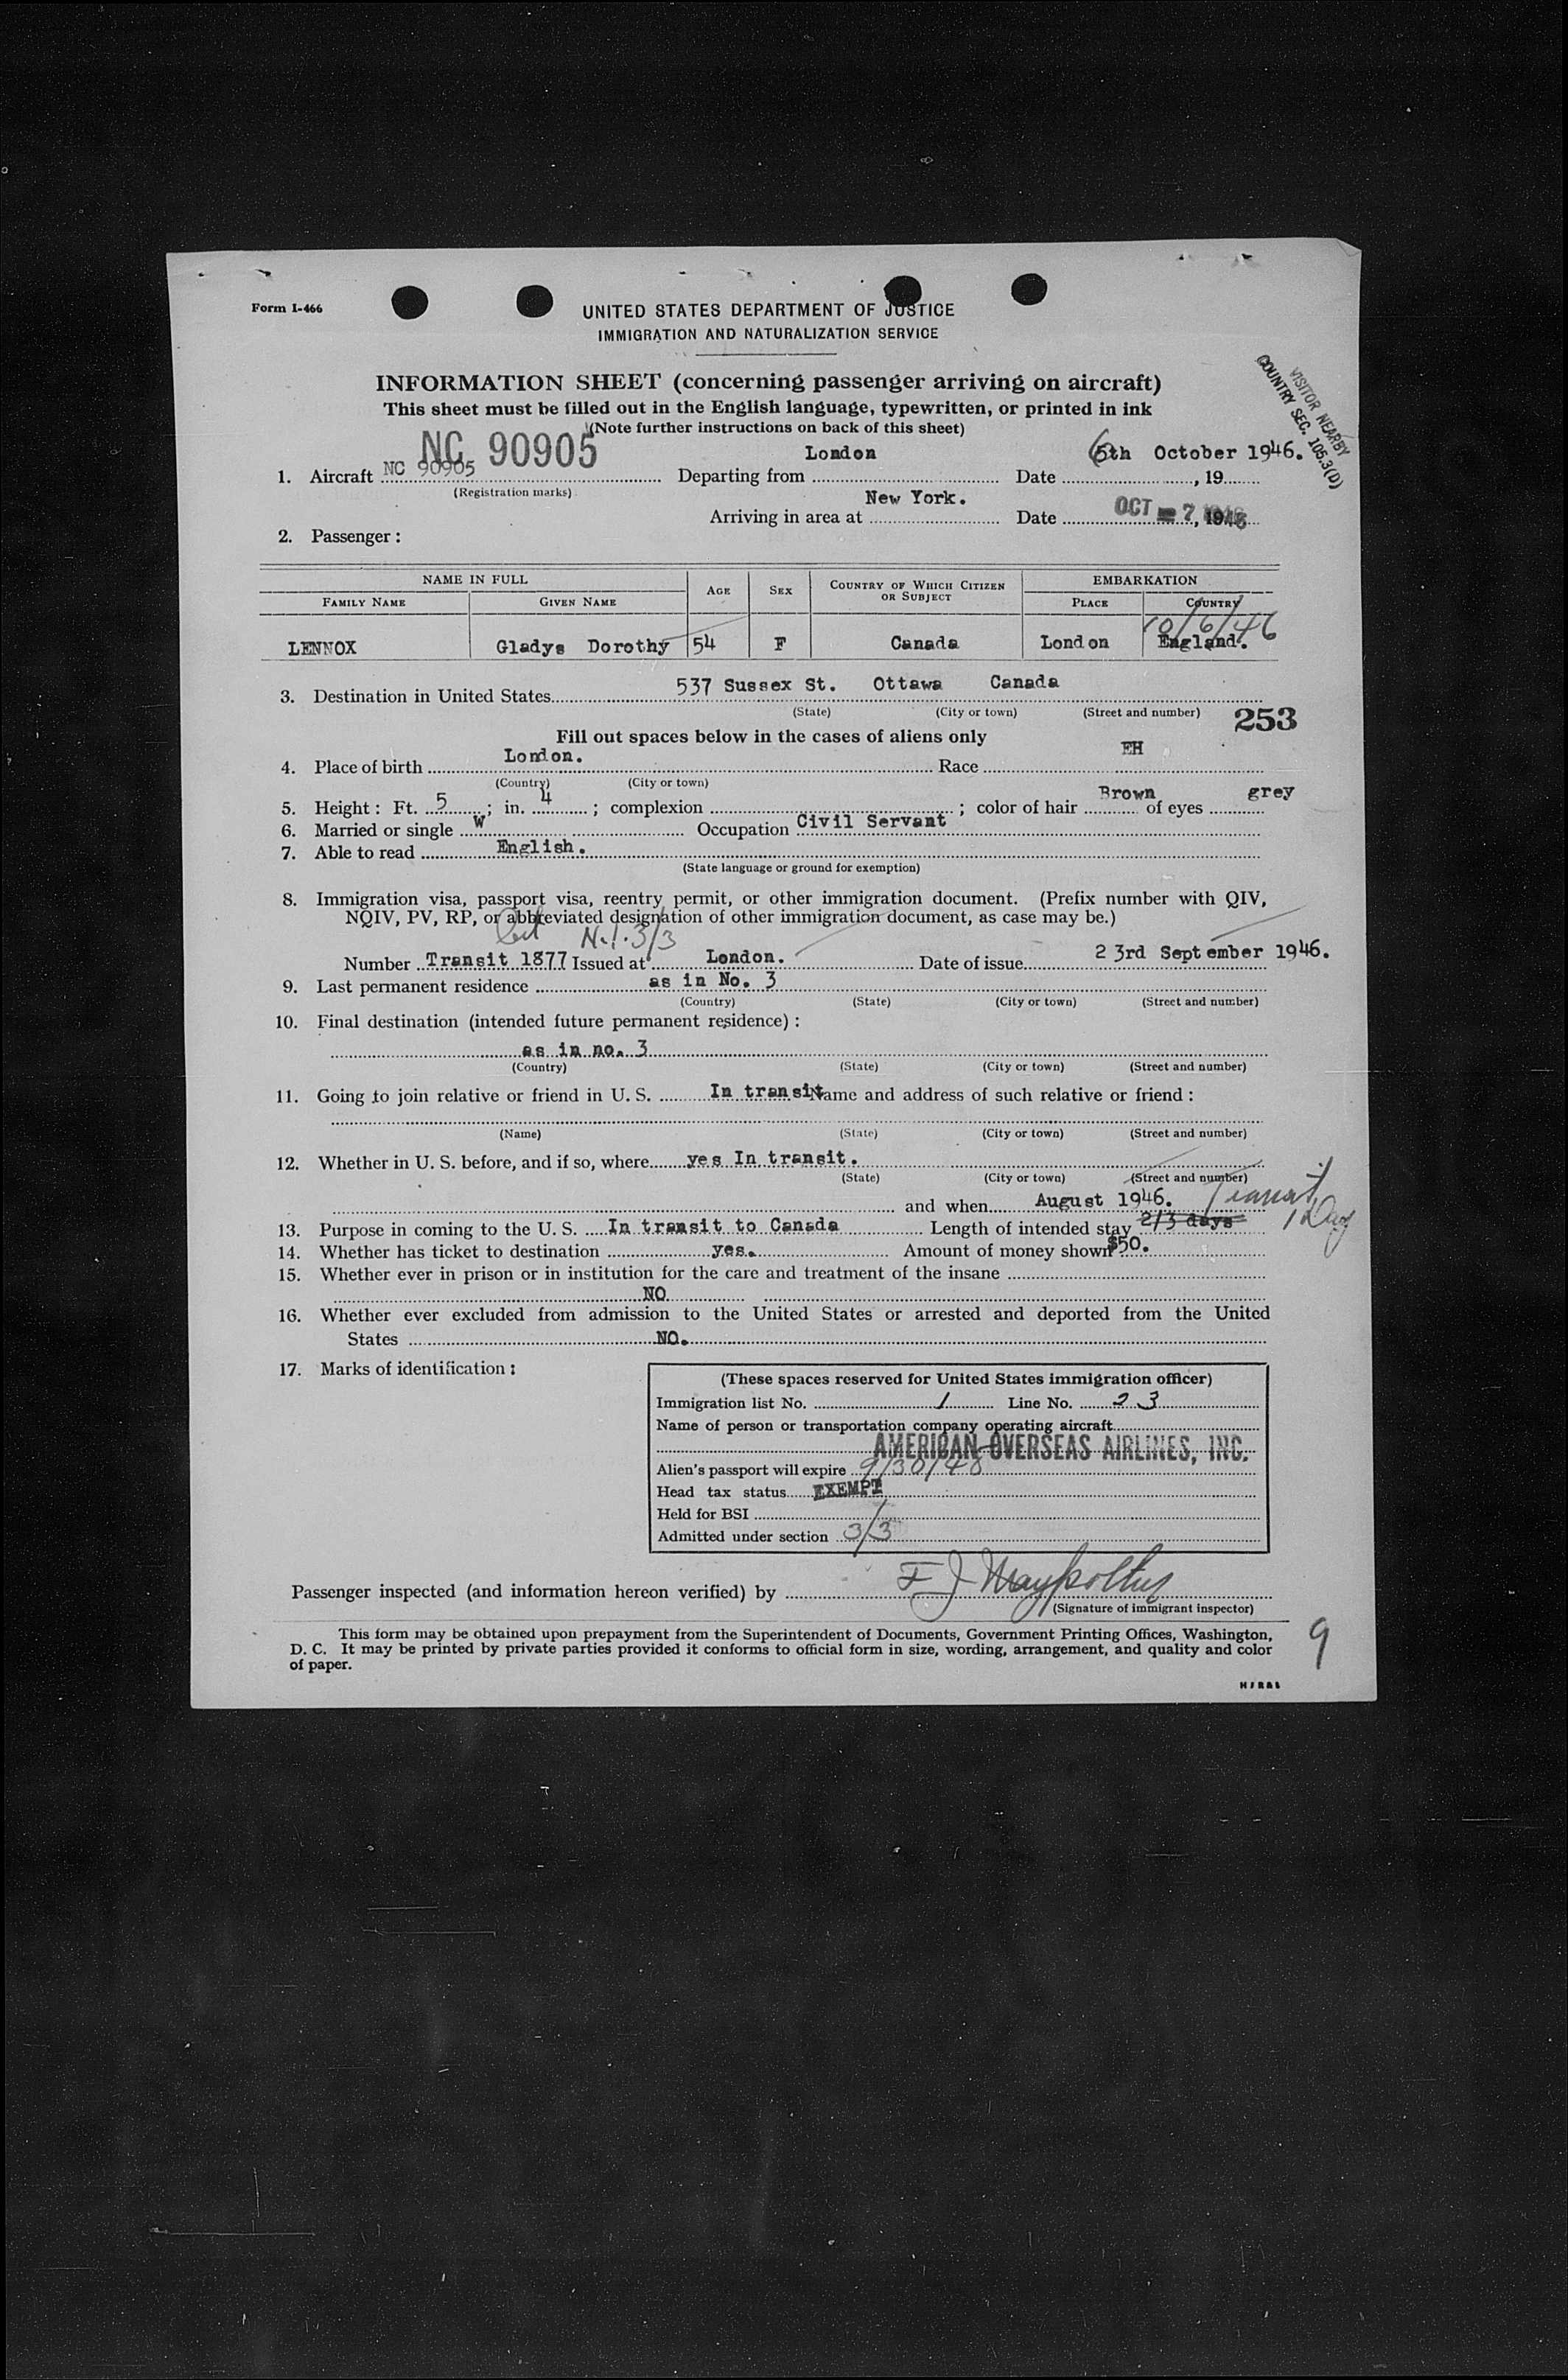 Form I-466
UNITED STATES DEPARTMENT OF JUSTICE
IMMIGRATION AND NATURALIZATION SERVICE
VISITOR NEARBY
COUNTRY SEC. 105.3(D)
INFORMATION SHEET (concerning passenger arriving on aircraft)
This sheet must be filled out in the English language, typewritten, or printed in ink
(Note further instructions on back of this sheet)
NC 90905
1. Aircraft NC 90905 Departing from London Date 6th October 1946. , 19
(Registration marks)
Arriving in area at New York. Date OCT - 7 1946
2. Passenger:
NAME IN FULL AGE SEX COUNTRY OF WHICH CITIZEN OR SUBJECT EMBARKATION
FAMILY NAME GIVEN NAME PLACE COUNTRY
10/6/46
LENNOX Gladys Dorothy 54 F Canada London England.
3. Destination in United States 537 Sussex St. Ottawa Canada
(State) (City or town) (Street and number) 253
Fill out spaces below in the cases of aliens only
4. Place of birth London. Race EH
(Country) (City or town)
5. Height: Ft. 5; in. 4; complexion ; color of hair Brown of eyes grey
6. Married or single W Occupation Civil Servant
7. Able to read English.
(State language or ground for exemption)
8. Immigration visa, passport visa, reentry permit, or other immigration document. (Prefix number with QIV,
NQIV, PV, RP, or abbreviated designation of other immigration document, as case may be.)
N.I. 3/3
Number Transit 1877 Issued at London. Date of issue 23rd September 1946.
9. Last permanent residence as in No. 3
(Country) (State) (City or town) (Street and number)
10. Final destination (intended future permanent residence):
as in no. 3
(Country) (State) (City or town) (Street and number)
11. Going to join relative or friend in U. S. In transit Name and address of such relative or friend:
(Name) (State) (City or town) (Street and number)
12. Whether in U. S. before, and if so, where yes In transit.
(State) (City or town) (Street and number)
and when August 1946. Transit
13. Purpose in coming to the U. S. In transit to Canada Length of intended stay 2/3 days 1 Day
14. Whether has ticket to destination yes. Amount of money shown $50.
15. Whether ever in prison or in institution for the care and treatment of the insane
NO
16. Whether ever excluded from admission to the United States or arrested and deported from the United
States NO.
17. Marks of identification:
(These spaces reserved for United States immigration officer)
Immigration list No. 1 Line No. 23
Name of person or transportation company operating aircraft
AMERICAN OVERSEAS AIRLINES, INC.
Alien's passport will expire 9/30/48
Head tax status EXEMPT
Held for BSI
Admitted under section 3/3
Passenger inspected (and information hereon verified) by F J
(Signature of immigrant inspector)
This form may be obtained upon prepayment from the Superintendent of Documents, Government Printing Offices, Washington,
D. C. It may be printed by private parties provided it conforms to official form in size, wording, arrangement, and quality and color
of paper.
9